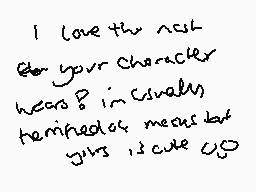 I love the mask
your character
wears? im usually
terrified of masks but
yours is cute